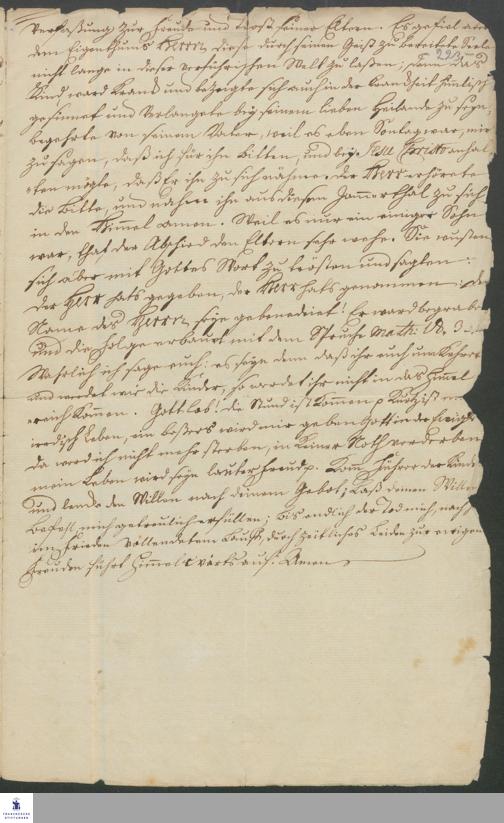 Verfaßung zur Freude und Trost seiner Eltern. Es gefiel aber
dem Eigenthums Herrn diese durch seinen Geist zu bereitete Seele
223
nicht lange in dieser verführischen Welt zu laßen; denn das
Kind ward krank und bezeigte sich auch in der Krankheit kindlich
gesinnet und verlangete bey seinem lieben Heilande zu seyn,
begehrte von seinem Vater, weil es eben Sontag war, mir
zu sagen, daß ich für ihn bitten, und bey JESU Christo anhal
ten mögte, daß Er ihn zu sich nahme. der HErr erhörete
die Bitte, und nahm ihn aus diesem Jamerthal zu sich
in den Himel Amen. Weil es nur ein einiger Sohn
war, that der Abschied den Eltern sehr wehe. Sie wusten
sich aber mit Gottes Wort zu trösten und sagten:
der HErr hats gegeben, der HErr hats genommen: der
Name des HErrn seye gebenedeiet! Er ward begraben
und die folge erbaut mit dem Spruche Math: 18, 3.
Warlich ich sage euch: es seye denn daß ihr euch umkehret
und werdet wie die Kinder, so werdet ihr nicht in das Himel
reich kommen. Gottlob! die Stund ist kommen
irrdisch Leben, ein beßers wird mir geben Gott in der Ewigk
da werd ich nicht mehr sterben, in keiner Noth verderben
mein Leben wird seyn lauter Freud. Kom, Führer der Kinder
und lencke den Willen nach deinem Gebot; Laß deinen Willen
mich getreulich erfüllen; bis endlich der Tod mich, nach
im Frieden vollendetem Lauff, durch zeitliches Leiden zur ewigen
Freuden führt Himmelwärts auf. Amen
FRANCKESCHE
STIFTUNGEN